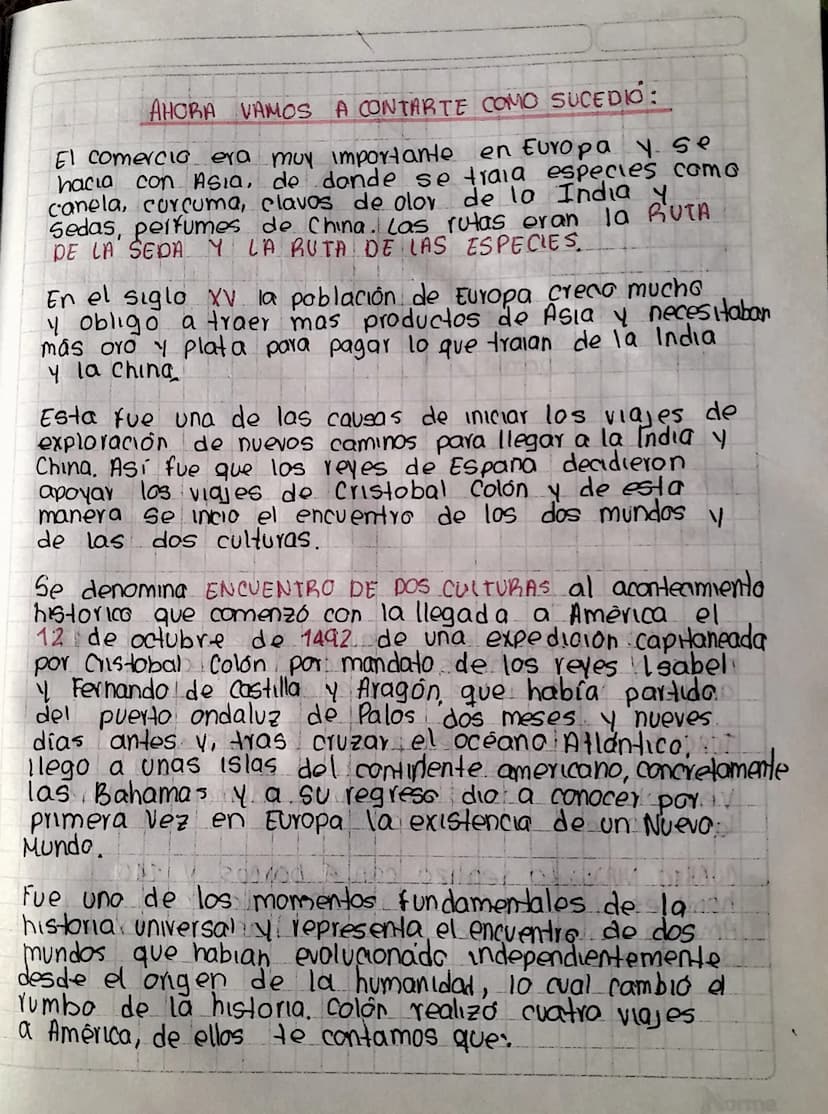 AHORA VAMOS A CONTARTE COMO SUCEDIÓ:
El comercio era muy importante en Europa y se
hacia con Asia, de donde se traia especies como
canela, curcuma, clavos de olor de la India y
Sedas, perfumes de China. Las rutas eran la RUTA
DE LA SEDA Y LA RUTA DE LAS ESPECIES.
En el siglo XV la población de Europa crecio mucho
y obligo a traer mas productos de Asia y necesitaban
más oro y plata para pagar lo que traian de la India
y la China.
Esta fue una de las causas de iniciar los viajes de
exploración de nuevos caminos para llegar a la India y
China. Así fue que los reyes de España decidieron
apoyar los viajes de Cristobal Colón y de esta
manera se incio el encuentro de los dos mundos y
de las dos culturas.
Se denomina ENCUENTRO DE DOS CULTURAS al acontecimiento
historico que comenzó con la llegada a América el
12 de octubre de 1492 de una expedición capitaneada
por Cristobal Colón por mandato de los reyes Isabel
y Fernando de Castilla y Aragón, que había partido
del puerto andaluz de Palos dos meses y nueves
días antes y, tras cruzar el océano Atlántico,
llego a unas islas del continente americano, concretamente
las Bahamas y a su regreso dio a conocer por
primera vez en Europa la existencia de un Nuevo
Mundo.
Fue uno de los momentos fundamentales de la
historia universal y representa el encuentro de dos
mundos que habian evolucionado independientemente
desde el origen de la humanidad, lo cual cambió el
rumbo de la historia. Colón realizó cuatro viajes
a América, de ellos te contamos que:
Norma